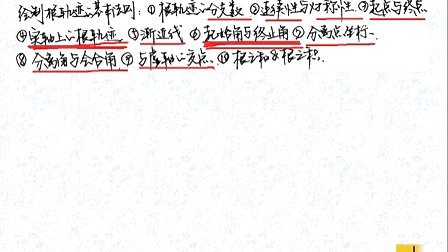 绘制根轨迹的基本法则: ①根轨迹的分支数 ②连续性与对称性 ③起点与终点
④实轴上的根轨迹 ⑤渐近线 ⑥起始角与终止角 ⑦分离点坐标
⑧分离角与会合角 ⑨与虚轴的交点 ⑩根之和及根之积